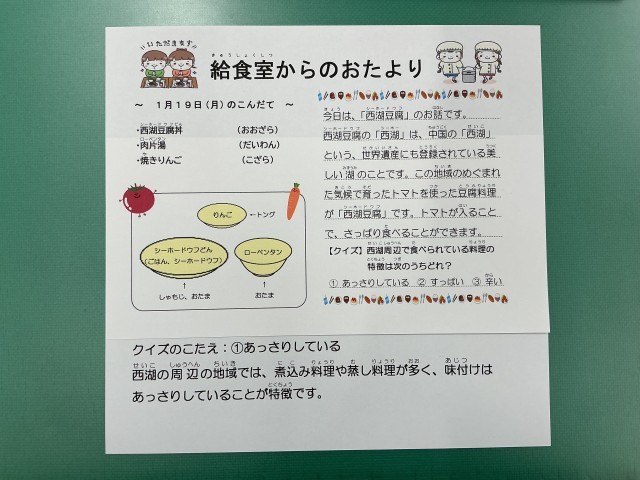 いただきます!!
給食室からのおたより
きゅうしょくしつ
~ 1月19日(月)のこんだて ~
・西湖豆腐丼 (おおざら)
シーホードウフどん
・肉片湯 (だいわん)
ローペンタン
・焼きりんご (こざら)
りんご ←トング
シーホードウフどん
(ごはん、シーホードウフ)
ローペンタン
↑ ↑
しゃもじ、おたま おたま
今日は、「西湖豆腐」のお話です。
西湖豆腐の「西湖」は、中国の「西湖」
という、世界遺産にも登録されている美
しい湖のことです。この地域のめぐまれ
た気候で育ったトマトを使った豆腐料理
が「西湖豆腐」です。トマトが入ること
で、さっぱり食べることができます。
【クイズ】西湖周辺で食べられている料理の
特徴は次のうちどれ?
① あっさりしている ② すっぱい ③ 辛い
クイズのこたえ:①あっさりしている
西湖の周辺の地域では、煮込み料理や蒸し料理が多く、味付けは
あっさりしていることが特徴です。